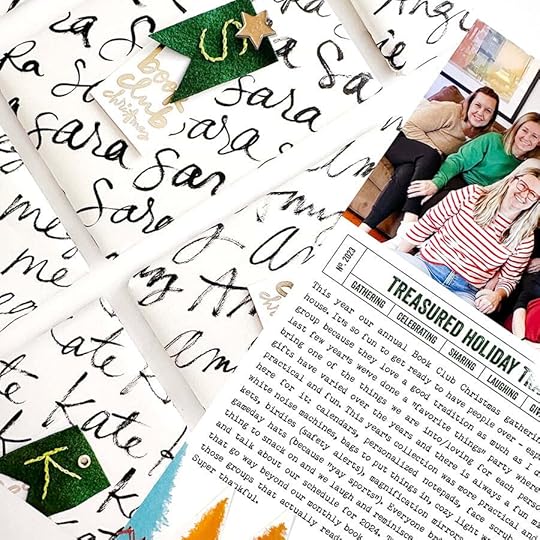 Angie
S
Sara
book
club
christmas
Sara
Sara
Sara
Sara
Sara
me
me
Amy
Amy
Kate
Kate
Kate
K
Nº. 2023
TREASURED HOLIDAY
GATHERING CELEBRATING SHARING LAUGHING
This year our annual Book Club Christmas gathering
house. It's so fun to get ready to have people over - espe
group because they love a good tradition as much as I d
last few years we've done a "favorite things" party
bring one of the things we are into/loving for each perso
gifts have varied over the years and there is always a fun mi
practical and fun. This years collection was more practical and
here for it: calendars, personalized notepads, face scrub
white noise machines, bags to put things in, cozy light w
kets, birdies (safety alerts), magnification mirrors
gameday hats (because "yay sports"). Everyone brings
thing to snack on and we laugh and reminisce
and talk about our schedule for 2024.
that go way beyond our monthly book
those groups that actually read
Super thankful.